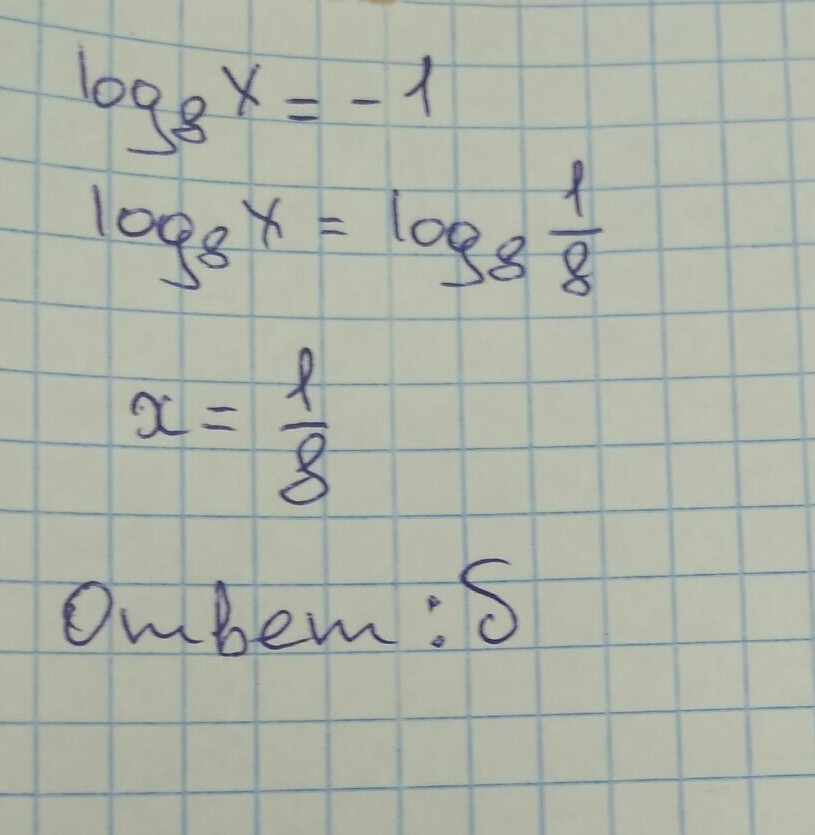 log₈ x = - 1
log₈ x = log₈ 1/8
x = 1/8
Ответ: Б